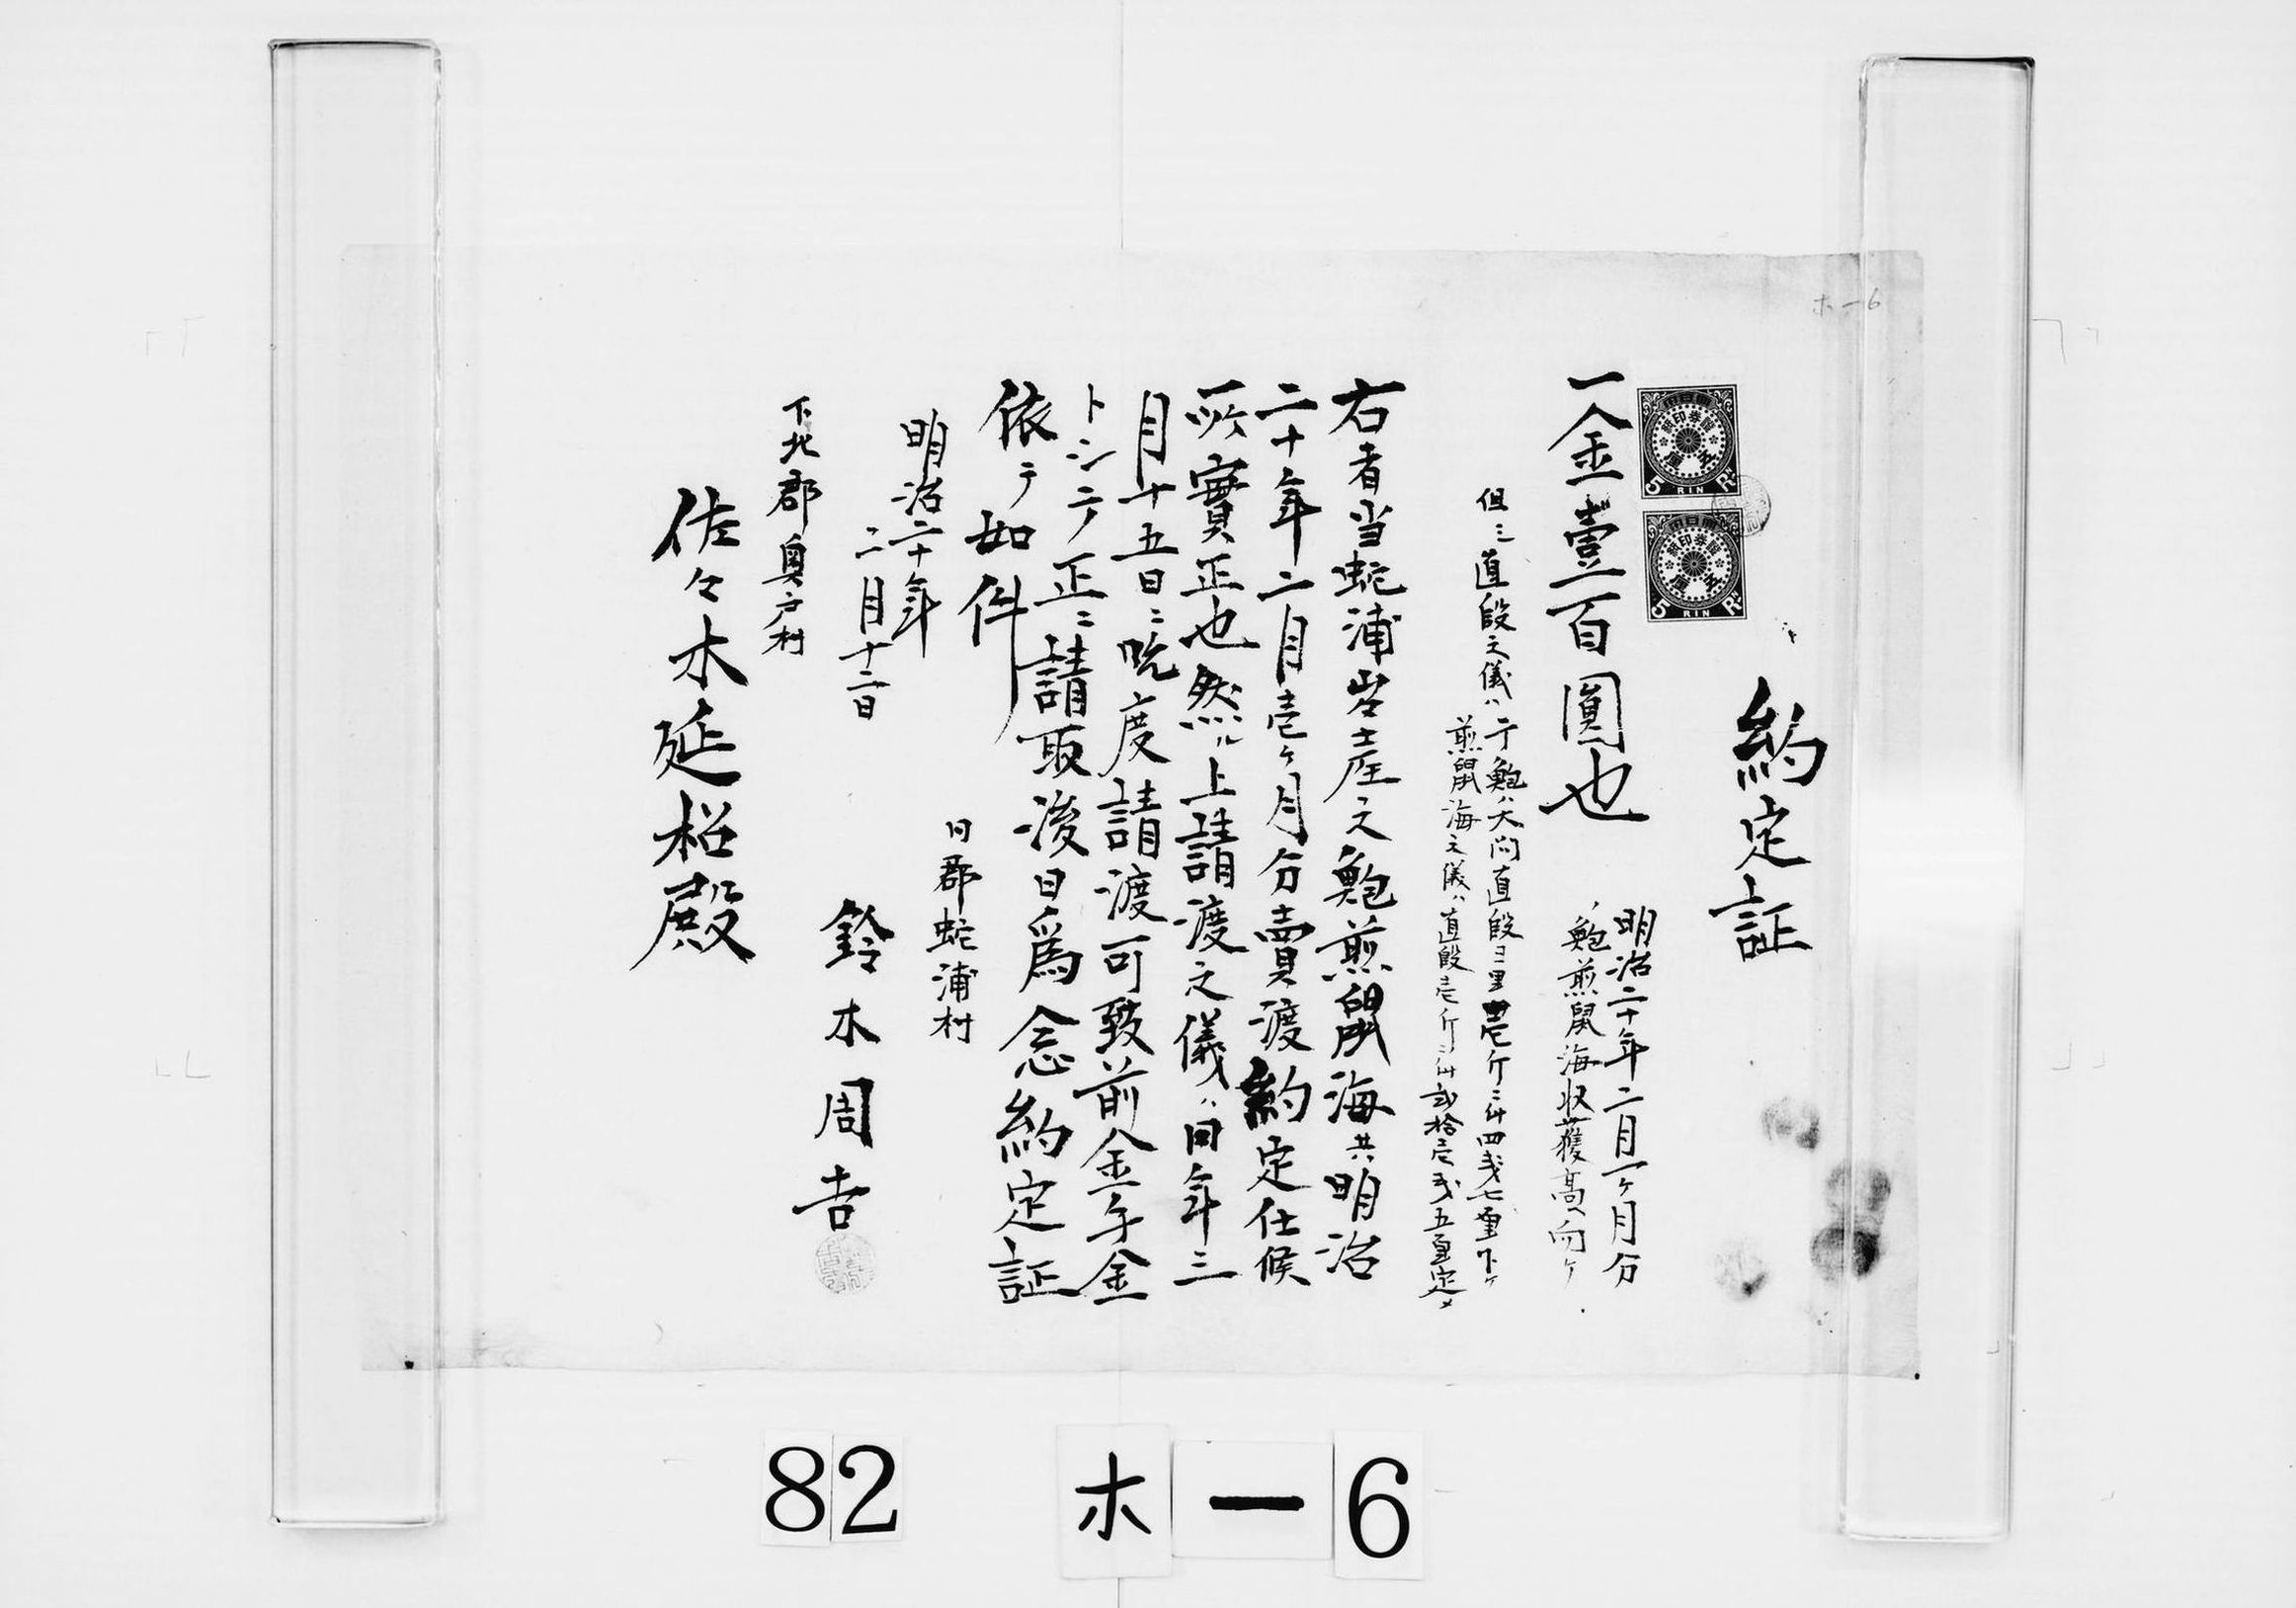 ホ一6
約定証
一金壹百圓也
明治二十年二月一ヶ月分
鮑煎鼠海收獲高向ケ
但シ直段之儀ハ
干鮑ハ大間直段ヨリ壱斤ニ付四戔七厘下ケ
煎鼠海之儀ハ直段壱斤ニ付弐拾壱戔五厘定メ
右者当蛇浦産之鮑煎鼠海共明治
二十年二月壱ヶ月分賣渡約定仕候
所實正也然ル上請渡之儀ハ同年三
月十五日ニ吃度請渡可致前金手金
トシテ正ニ請取後日爲念約定証
依テ如件
明治二十年
二月十二日
同郡蛇浦村
鈴木周吉
下北郡奥戸村
佐々木延松殿
5 RIN
5 RIN
82 ホ一6